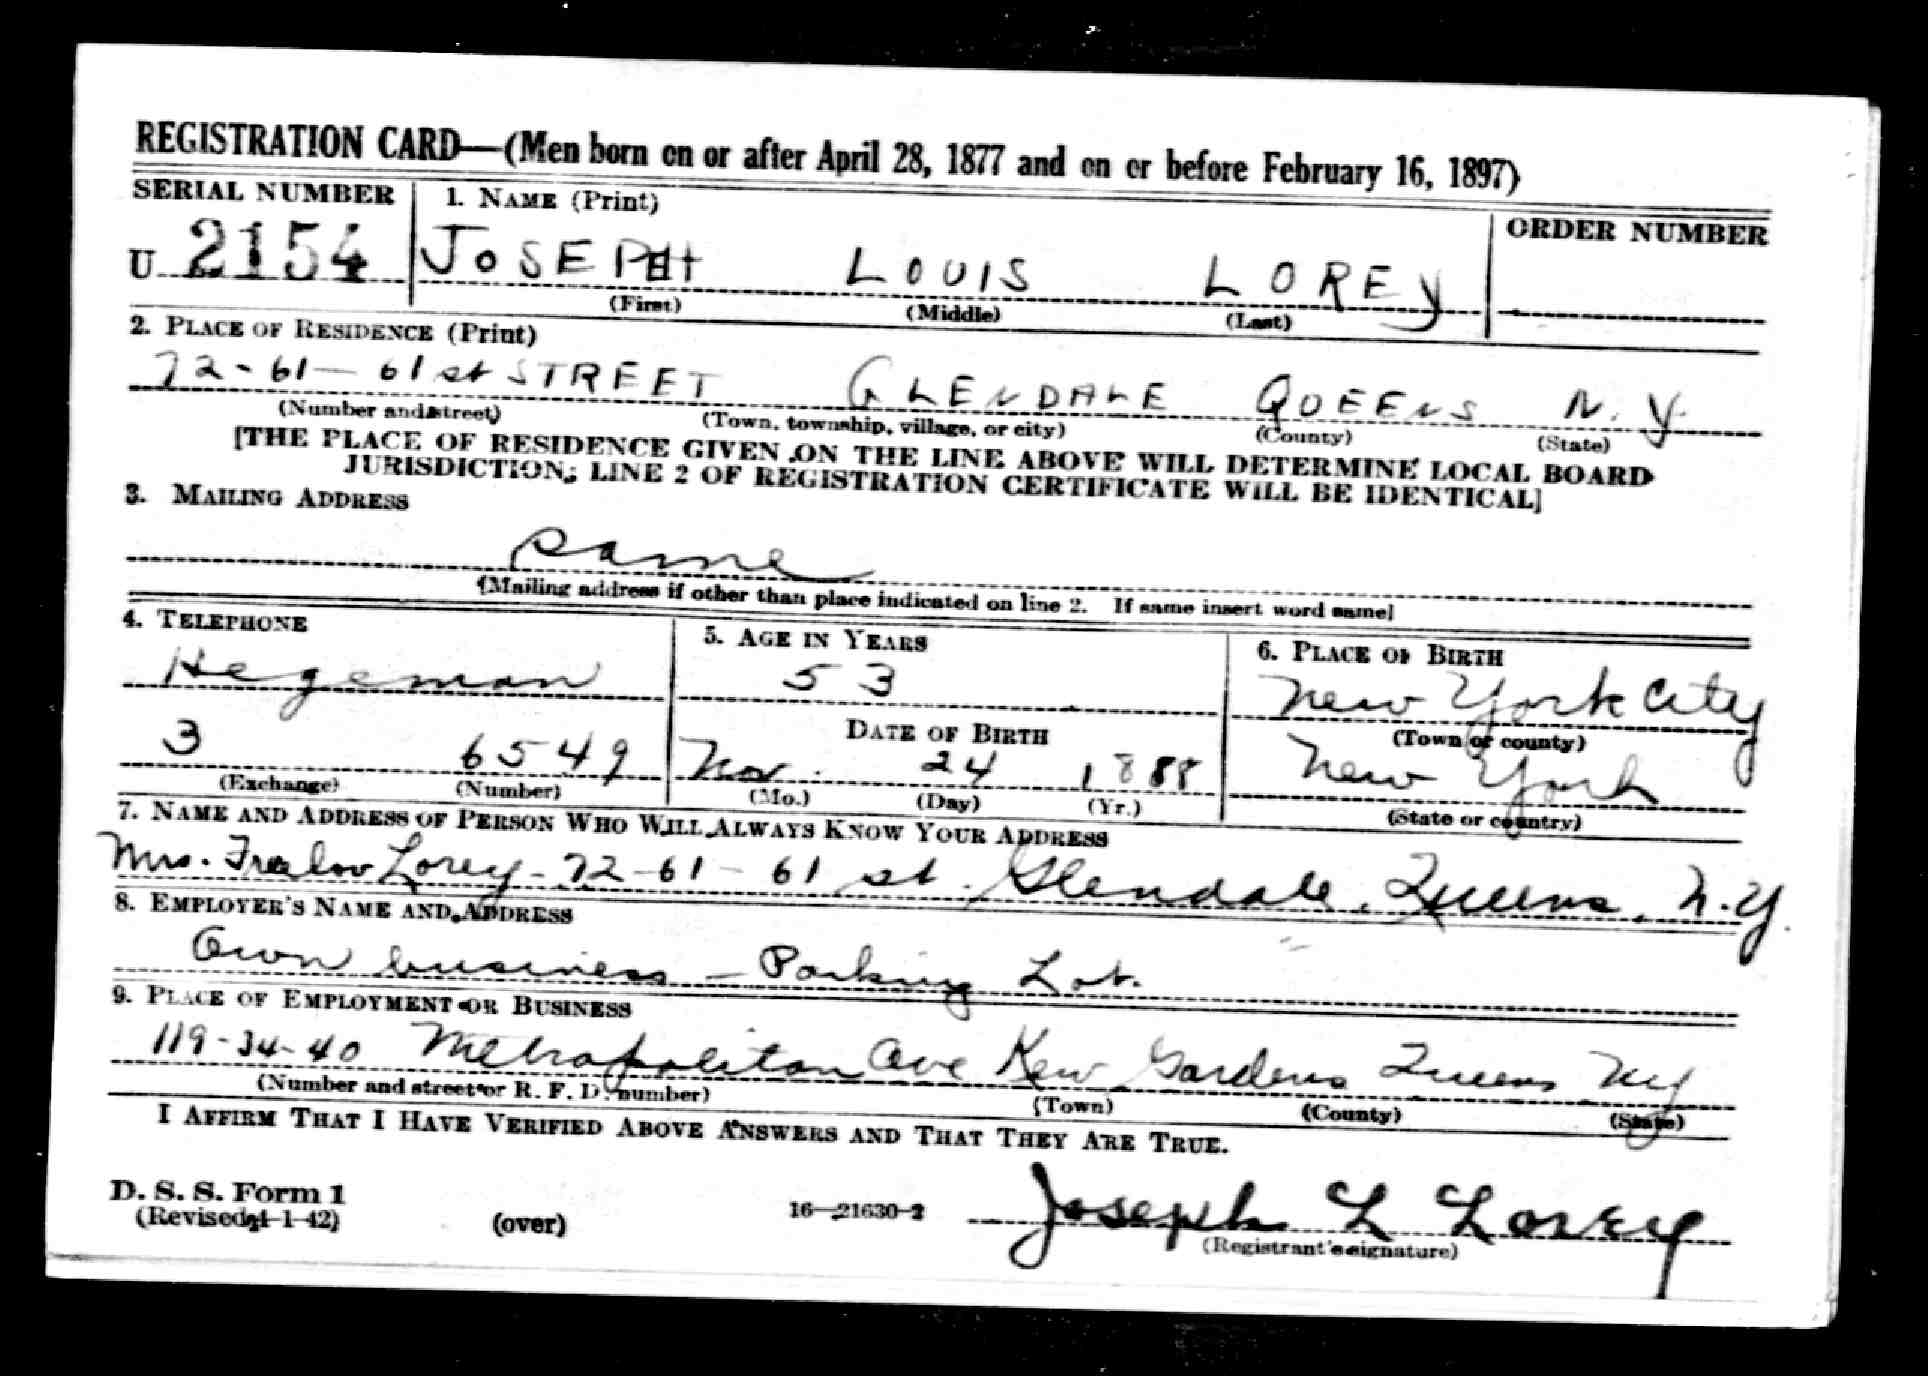 REGISTRATION CARD—(Men born on or after April 28, 1877 and on or before February 16, 1897)
SERIAL NUMBER
1. NAME (Print)
ORDER NUMBER
U 2154
JOSEPH LOUIS LOREY
(First) (Middle) (Last)
2. PLACE OF RESIDENCE (Print)
72-61-61st STREET GLENDALE QUEENS N.Y.
(Number and street) (Town, township, village, or city) (County) (State)
[THE PLACE OF RESIDENCE GIVEN ON THE LINE ABOVE WILL DETERMINE LOCAL BOARD
JURISDICTION; LINE 2 OF REGISTRATION CERTIFICATE WILL BE IDENTICAL]
3. MAILING ADDRESS
Same
[Mailing address if other than place indicated on line 2. If same insert word same]
4. TELEPHONE
5. AGE IN YEARS
6. PLACE OF BIRTH
Hegeman
53
New York City
DATE OF BIRTH
(Town or county)
3 6549
Nov. 24 1888
New York
(Exchange) (Number)
(Mo.) (Day) (Yr.)
(State or country)
7. NAME AND ADDRESS OF PERSON WHO WILL ALWAYS KNOW YOUR ADDRESS
Mrs. Lorey - 72-61-61 st. Glendale, Queens, N.Y.
8. EMPLOYER'S NAME AND ADDRESS
Own business — Parking Lot.
9. PLACE OF EMPLOYMENT OR BUSINESS
119-34-40 Metropolitan Ave Kew Gardens Queens NY
(Number and street or R. F. D. number) (Town) (County) (State)
I AFFIRM THAT I HAVE VERIFIED ABOVE ANSWERS AND THAT THEY ARE TRUE.
D. S. S. Form 1
(Revised 4-1-42) (over) 16—21630-2
Joseph L Lorey
(Registrant's signature)